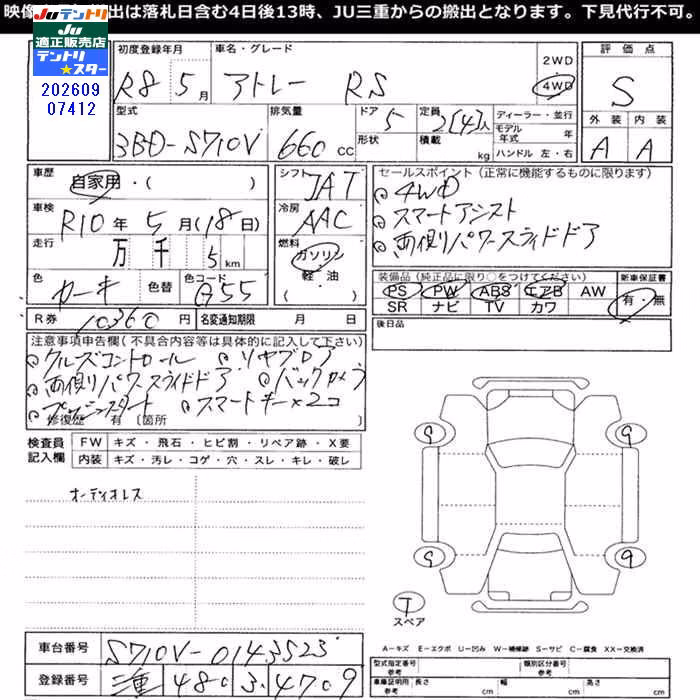 映像 出は落札日含む4日後13時、JU三重からの搬出となります。下見代行不可。
JUテントリ
JU
適正販売店
テントリ
★スター
202609
07412
初度登録年月 車名・グレード 2WD 4WD 評価点
R8 5月 アトレー RS S
型式 排気量 ドア 形状 定員 積載 ディーラー・並行 外装 内装
3BD-S710V 660cc 5 2[4]人 kg モデル年式 年 ハンドル 左・右 A A
車歴 自家用・( ) シフト IAT セールスポイント(正常に機能するものに限ります)
車検 R10年5月(18日) 冷房 AAC 4WD
スマートアシスト
両側パワースライドドア
走行 万千5km 燃料 ガソリン 軽・油 ( )
色 カーキ 色替 色コード G55
装備品(純正品に限り○をつけてください) 新車保証書
PS PW ABS エアB AW 有・無
SR ナビ TV カワ
R券 10360円 名変通知期限 月 日 後日品
注意事項申告欄(不具合内容等は具体的に記入して下さい)
クルーズコントロール リヤブロア
両側パワースライドドア バックカメラ
プッシュスタート スマートキー×2コ
修復歴 有〔箇所
検査員記入欄 FW キズ・飛石・ヒビ割・リペア跡・X要
内装 キズ・汚レ・コゲ・穴・スレ・キレ・破レ
オーディオレス
9 9
9 9
T
スペア
A=キズ E=エクボ U=凹み W=補修跡 S=サビ C=腐食 XX=交換済
車台番号 S710V-0143523
登録番号 三重 480 え 4709
型式指定番号 参考 類別区分番号 参考
車庫証明用 参考 長さ cm 幅 cm 高さ cm